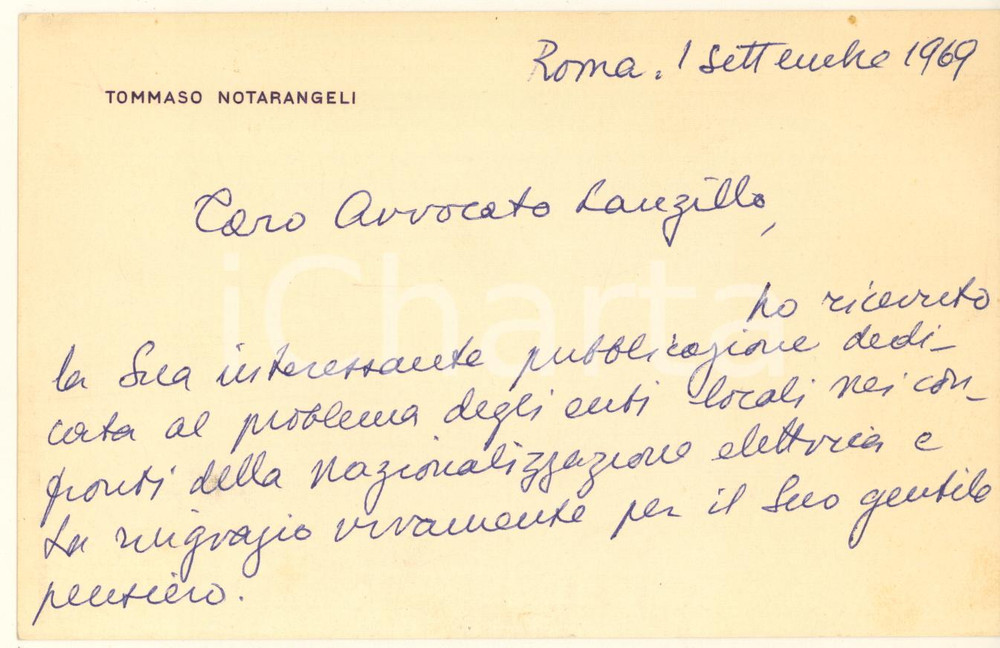 Roma. 1 Settembre 1969
TOMMASO NOTARANGELI
Caro Avvocato Lanzillo,
ho ricevuto
la Sua interessante pubblicazione dedi-
cata al problema degli enti locali nei con-
fronti della nazionalizzazione elettrica e
La ringrazio vivamente per il Suo gentile
pensiero.
iCharta